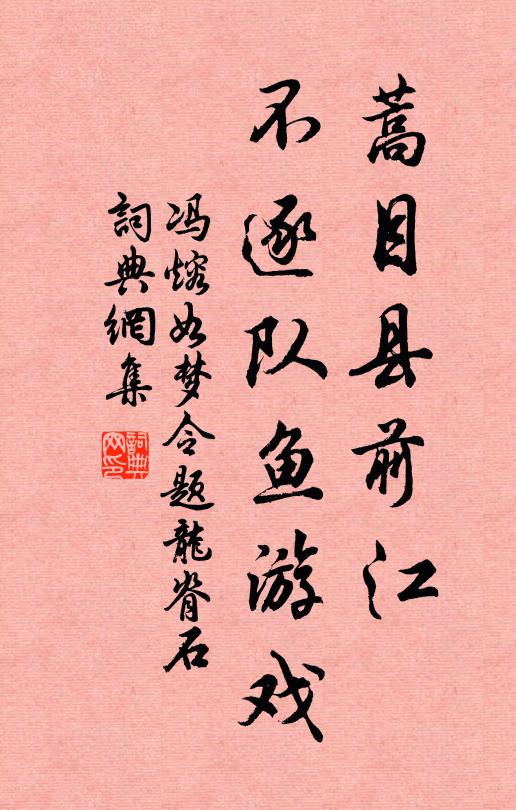 蒿目县前江
不逐队鱼游戏
冯熔如梦令题龍脊石
詞典網集
詞典网印